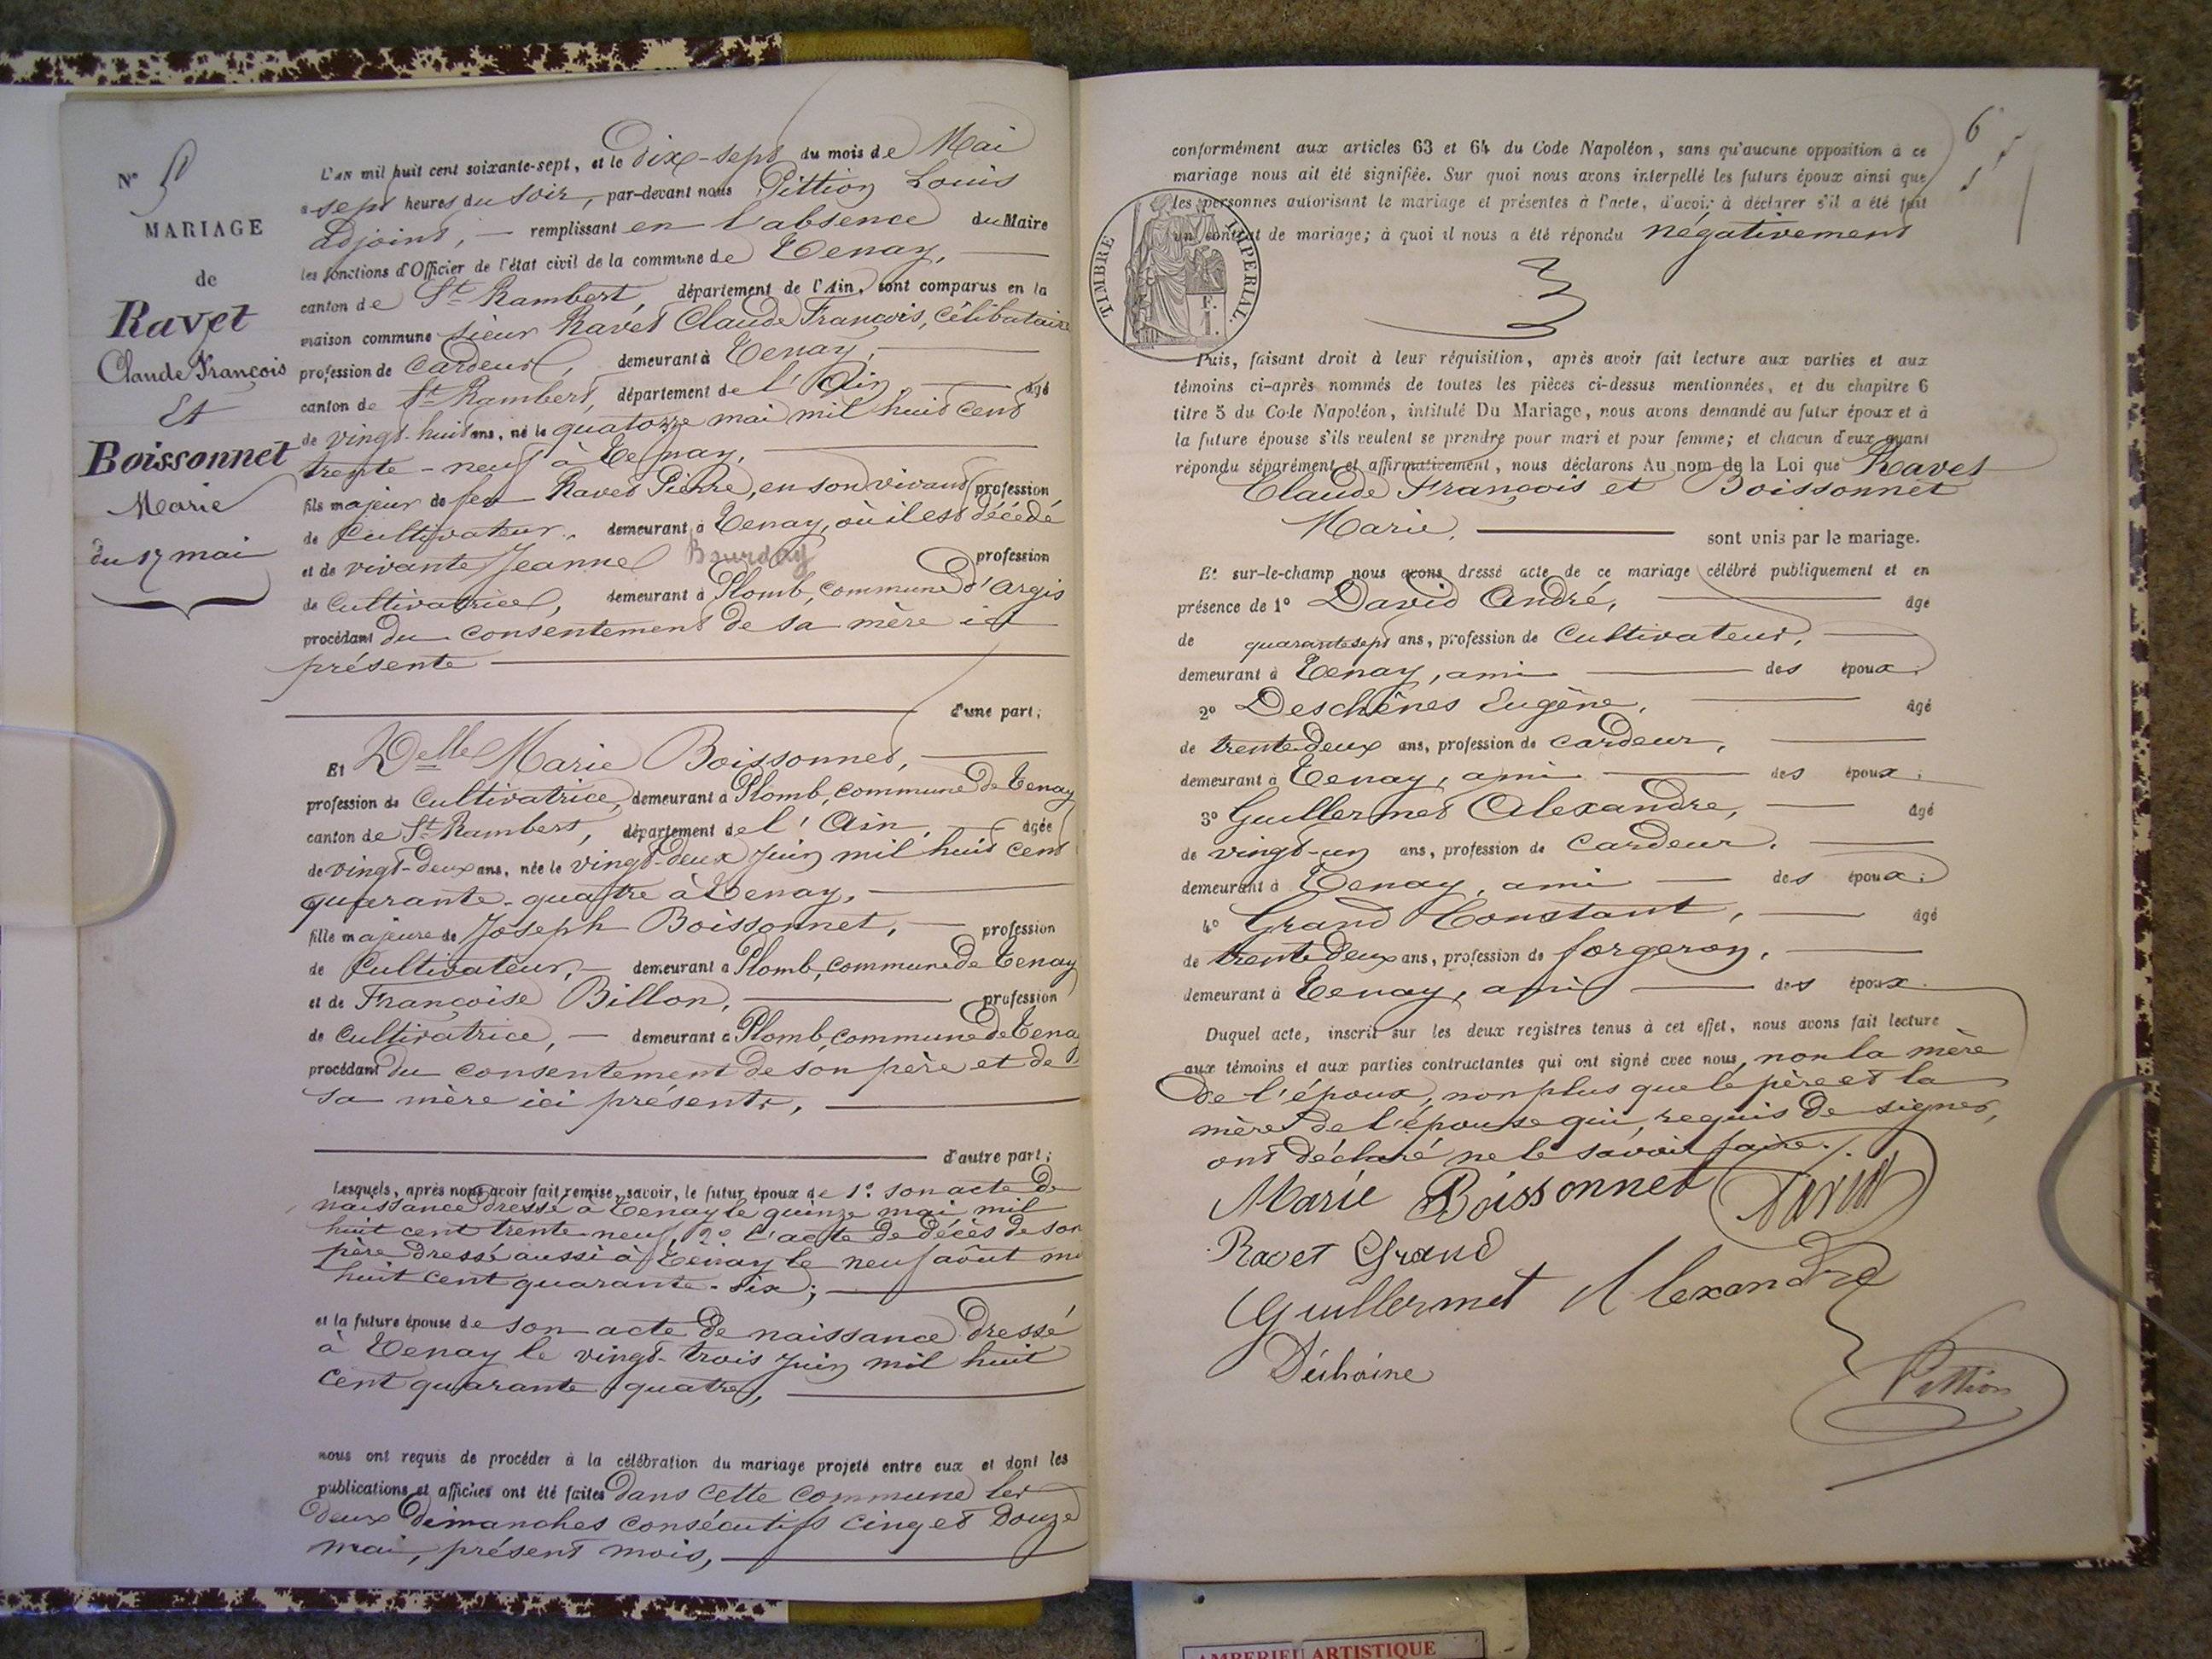 N° 5
MARIAGE
de
Ravet
Claude François
Et
Boissonnet
Marie
du 17 mai
L'AN mil huit cent soixante-sept, et le dix-sept du mois de Mai
a sept heures du soir, par-devant nous Pittion Louis
adjoint, remplissant en l'absence du Maire
les fonctions d'Officier de l'état civil de la commune de Tenay,
canton de St Rambert, département de l'Ain, sont comparus en la
maison commune sieur Ravet Claude François, célibataire
profession de Cardeur, demeurant à Tenay,
canton de St Rambert, département de l'Ain, âgé
de vingt-huit ans, né le quatorze mai mil huit cent
trente-neuf à Tenay,
fils majeur de feu Ravet Pierre, en son vivant profession
de Cultivateur, demeurant à Tenay, où il est décédé
et de vivante Jeanne Bourday profession
de Cultivatrice, demeurant à Plomb, commune d'Argis
procédant du consentement de sa mère ici
présente
d'une part;
Et Delle Marie Boissonnet,
profession de Cultivatrice, demeurant à Plomb, commune de Tenay
canton de St Rambert, département de l'Ain, âgée
de vingt-deux ans, née le vingt-deux Juin mil huit cent
quarante-quatre à Tenay,
fille majeure de Joseph Boissonnet, profession
de Cultivateur, demeurant à Plomb, commune de Tenay
et de Françoise Billon, profession
de Cultivatrice, demeurant à Plomb, commune de Tenay
procédant du consentement de son père et de
sa mère ici présents,
d'autre part;
Lesquels, après nous avoir fait remise, savoir, le futur époux de 1° son acte de
naissance dressé à Tenay le quinze mai mil
huit cent trente-neuf, 2° l'acte de décès de son
père dressé aussi à Tenay le neuf août mi
huit cent quarante-six;
et la future épouse de son acte de naissance dressé
à Tenay le vingt-trois Juin mil huit
cent quarante quatre,
nous ont requis de procéder à la célébration du mariage projeté entre eux et dont les
publications et affiches ont été faites dans cette commune les
deux dimanches consécutifs cinq et douze
mai, présent mois,
6
conformément aux articles 63 et 64 du Code Napoléon, sans qu'aucune opposition à ce
mariage nous ait été signifiée. Sur quoi nous avons interpellé les futurs époux ainsi que
les personnes autorisant le mariage et présentes à l'acte, d'avoir à déclarer s'il a été fait
un contrat de mariage; à quoi il nous a été répondu négativement
TIMBRE IMPERIAL.
F.
1.
Puis, faisant droit à leur réquisition, après avoir fait lecture aux parties et aux
témoins ci-après nommés de toutes les pièces ci-dessus mentionnées, et du chapitre 6
titre 5 du Code Napoléon, intitulé Du Mariage, nous avons demandé au futur époux et à
la future épouse s'ils veulent se prendre pour mari et pour femme; et chacun d'eux ayant
répondu séparément et affirmativement, nous déclarons Au nom de la Loi que Ravet
Claude François et Boissonnet
Marie, sont unis par le mariage.
Et sur-le-champ nous avons dressé acte de ce mariage célébré publiquement et en
présence de 1° David André, âgé
de quarante sept ans, profession de Cultivateur,
demeurant à Tenay, ami des époux.
2° Deschênes Eugène, âgé
de trente deux ans, profession de Cardeur,
demeurant à Tenay, ami des époux.
3° Guillermet Alexandre, âgé
de vingt-un ans, profession de Cardeur,
demeurant à Tenay, ami des époux.
4° Grand Constant, âgé
de trente deux ans, profession de forgeron,
demeurant à Tenay, ami des époux.
Duquel acte, inscrit sur les deux registres tenus à cet effet, nous avons fait lecture
aux témoins et aux parties contractantes qui ont signé avec nous, non la mère
de l'époux, non plus que le père et la
mère de l'épouse qui, requis de signer,
ont déclaré ne le savoir faire.
Marie Boissonnet David
Ravet Grand
Guillermet Alexandre
Déchaine
Pittion
AMBERIEU ARTISTIQUE